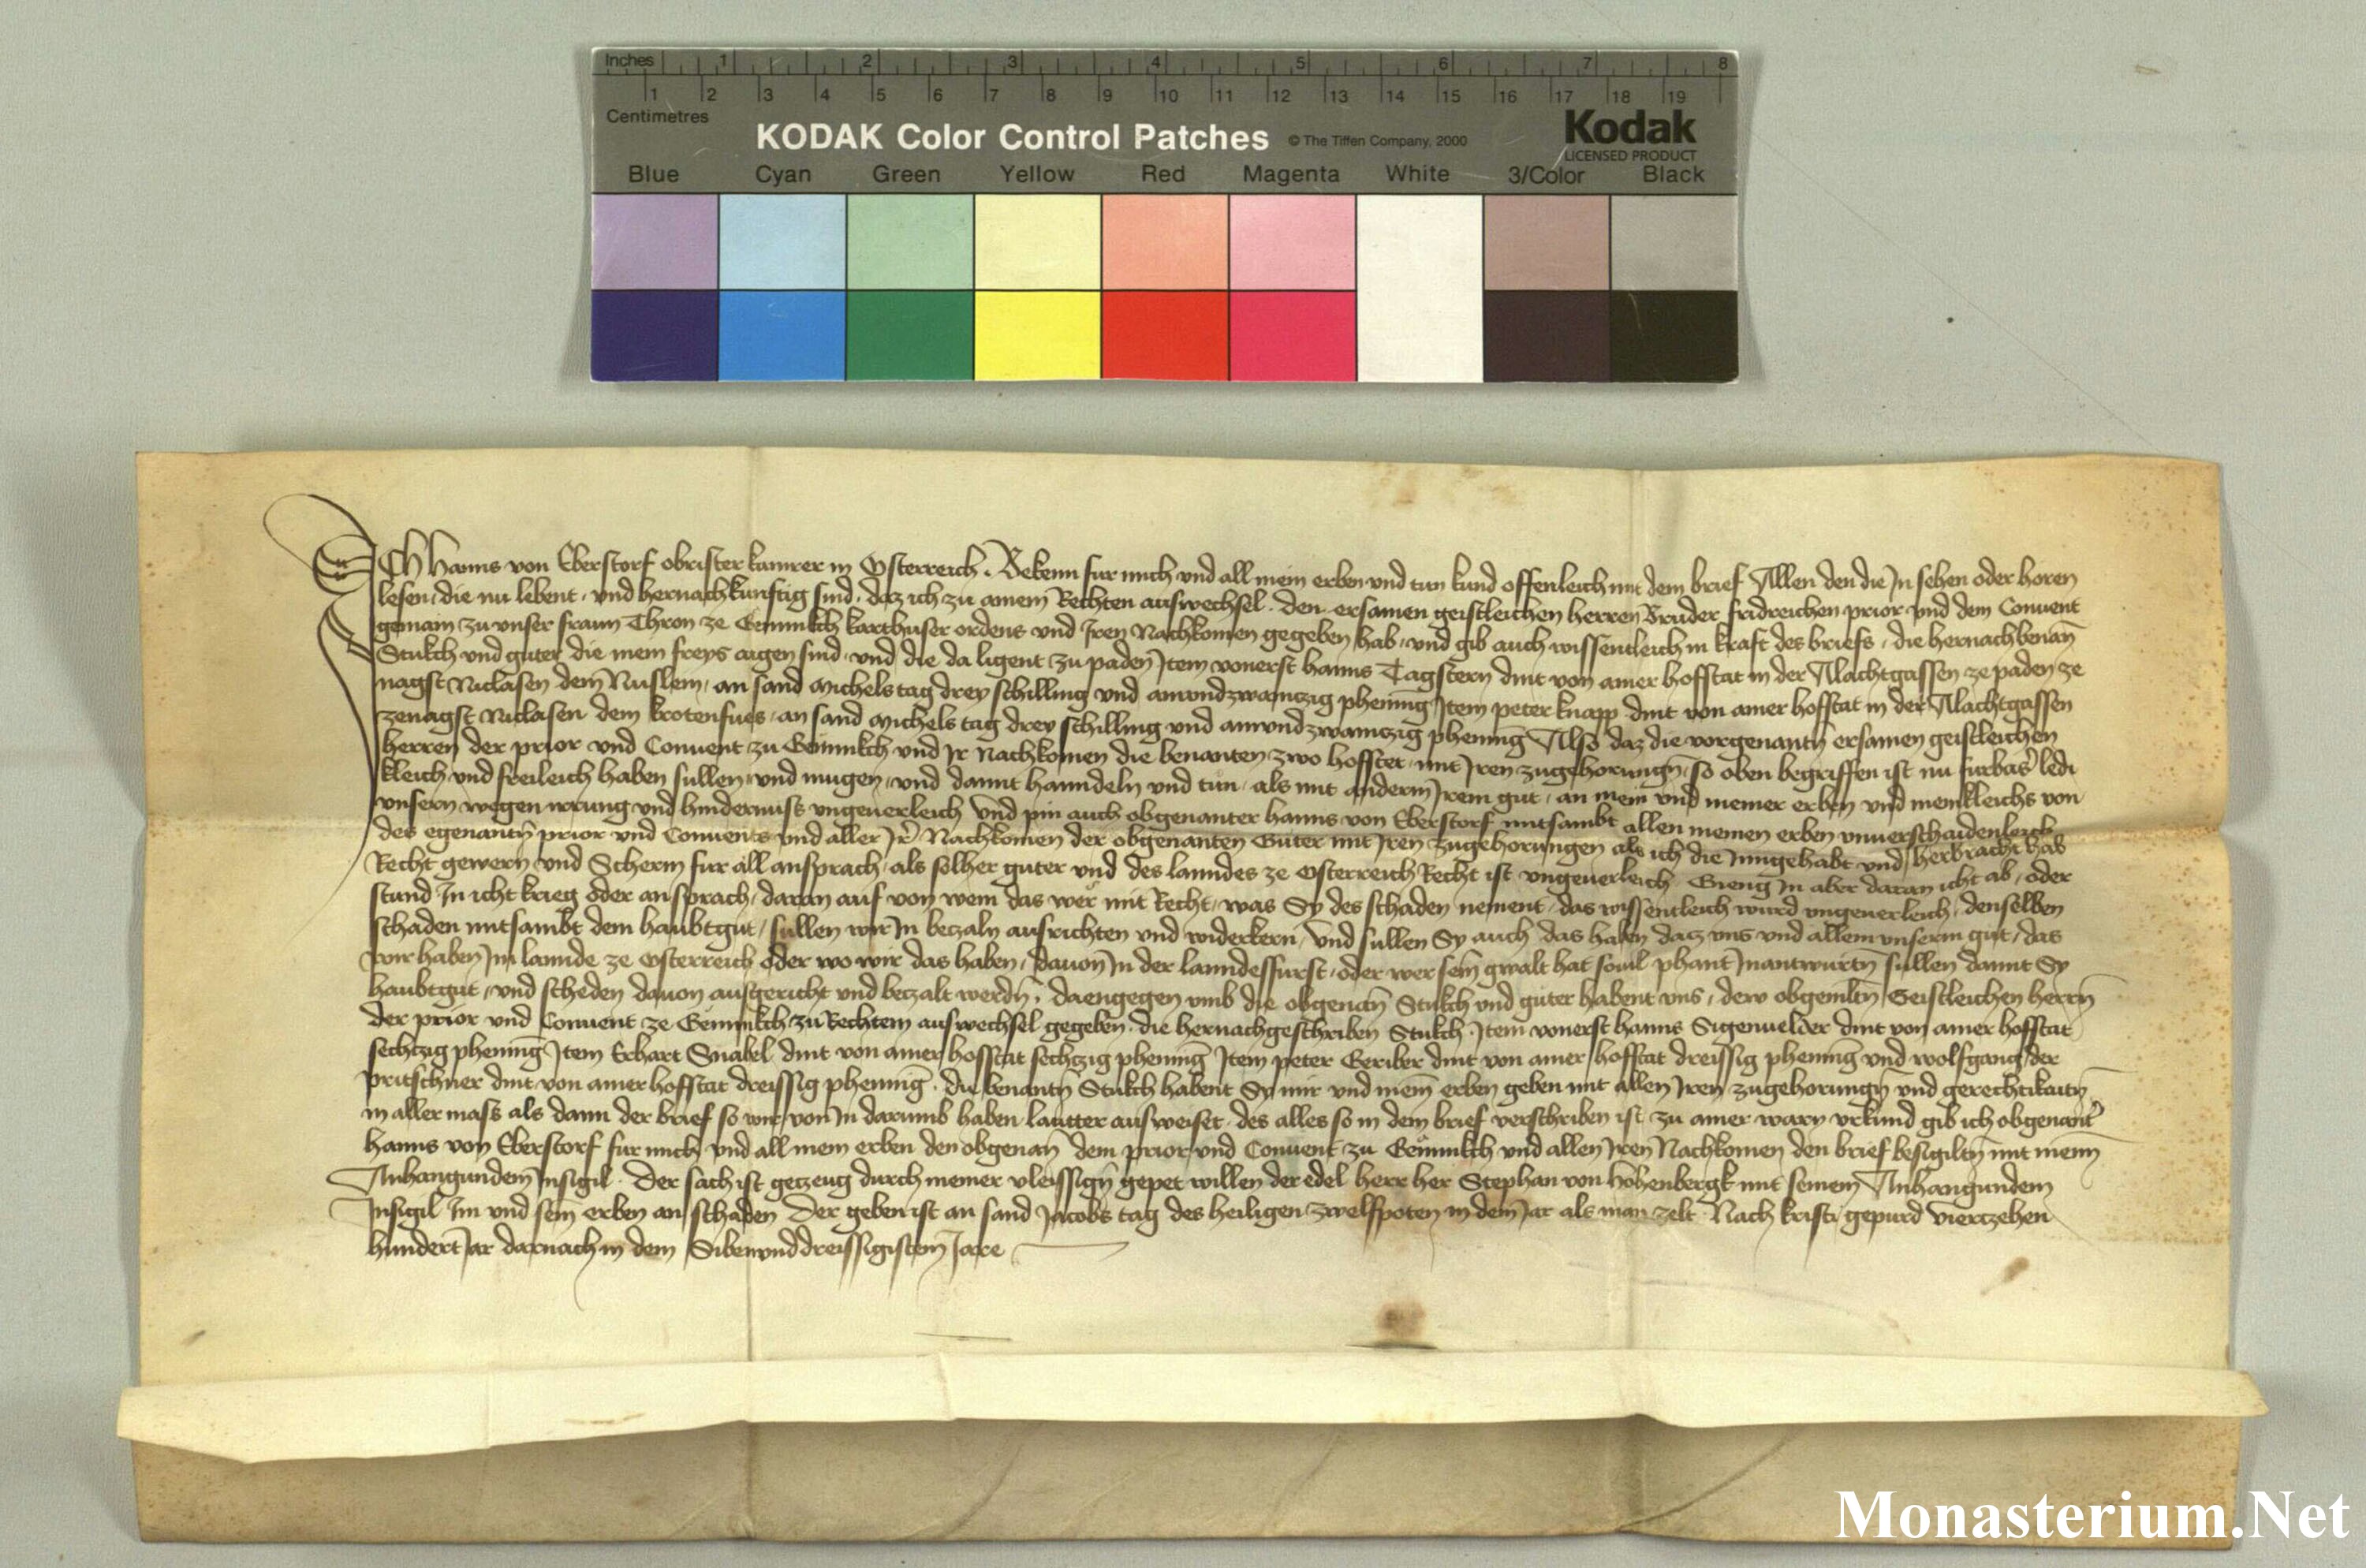 Inches 1 2 3 4 5 6 7 8
1 2 3 4 5 6 7 8 9 10 11 12 13 14 15 16 17 18 19
Centimetres
KODAK Color Control Patches © The Tiffen Company, 2000 Kodak
LICENSED PRODUCT
Blue Cyan Green Yellow Red Magenta White 3/Color Black
Ich Hanns von Eberstorf obrister kamrer in Osterreich. Bekenn fur mich und all mein erben und tun kund offenleich mit dem brief Allen den die In sehen oder horen
lesen, die nu lebent, und hernach kunftig sind, daz ich zu ainem Rechten auswechsel den ersamen geistleichen herren Bruder fridreichen prior und dem Convent
gemain zu unser fraun Thron ze Gemnikch karthuser ordens und Iren Nachkomen gegeben hab, und gib auch wissentleich in kraft des briefs, die hernachbenan̄
Stukch und guter die mein freys aigen sind und die da ligent zu paden Item vonerst hanns Tagstern dint von ainer hofstat in der Alachtgassen ze paden ze
nagst Niclasen dem Nuslem, an sand Michels tag drey schilling und ainundzwainczig phening Item peter knapp dint von ainer hofstat in der Alachtgassen
zenagst Niclasen dem krotenfues, an sand Michels tag drey schilling und ainundzwainczig phening Also daz die vorgenantn̄ ersamen geistleichen
herren der prior und Convent zu Gemnikch und Ir Nachkomen die benanten zwo hofstet, mit Iren zugehorungn̄, so oben begriffen ist nu furbas ledi
kleich und freileich haben sullen und mugen, und damit hanndeln und tun, als mit anderm Irem gut, an mein und meiner erben und menikleichs von
unsern wegen irrung und hindernuss ungeuerleich Und pin auch obgenanter hanns von Eberstorf mitsambt allen meinen erben unuerschaidenleich
des egenantn̄ prior und Convents und aller Ir Nachkomen der obgenanten Guter mit Iren zugehorungen als ich die Inngehabt und herbracht hab
Recht gewern und Scherm fur all ansprach, als solher guter und des lanndes ze Osterreich Recht ist ungeuerleich Gieng In aber daran icht ab, oder
stund In icht krieg oder ansprach, daran auf von wem das wer mit Recht, was Sy des schaden nement, das wissentleich wurd ungeuerleich, denselben
schaden mitsambt dem haubtgut, sullen wir In beczaln ausrichten und widerkern, Und sullen Sy auch das haben dacz uns und allem unserm gut, das
wir haben Im lannde ze Osterreich oder wo wir das haben, dauon In der lanndesfurst, oder wer sein gwalt hat souil phant Inantwurtn̄ sullen damit Sy
haubtgut, und scheden dauon ausgericht und beczalt werdn̄. daengegen umb die obgenan̄ Stukch und guter habent uns, dew obgemltn̄ Geistleichen herrn̄
der prior und Convent ze Gemnikch zu Rechtem auswechsel gegeben die hernachgeschriben Stukch Item vonerst hanns Sigenuelder dint von ainer hofstat
sechtzig phening Item Erhart Snabel dint von ainer hofstat sechtzig phening Item peter Geriber dint von ainer hofstat dreissig phening und wolfgang der
pritschner dint von ainer hofstat dreissig phening. die benantn̄ Stukch habent Sy mir und mein erben geben mit allen Iren zugehorungn̄ und gerechtikaitn̄
in aller mass als dann der brief so wir von In darumb haben lautter ausweiset des alles so in dem brief verschriben ist zu ainer warn urkund gib ich obgenant
hanns von Eberstorf fur mich und all mein erben den obgenan̄ dem prior und Convent zu Gemnikch und allen Iren Nachkomen den brief besigiltn̄ mit meim
Anhangundem Insigil. Der sach ist geczeug durch meiner vleissign̄ gepet willen der edel herr her Stephan von hohenbergk mit seinem Anhangundem
Insigil Im und sein erben an schaden Der geben ist an sand Jacobs tag des heiligen zwelfpoten in dem Jar als man zelt Nach kristi gepurd vierczehen
hundert Jar darnach in dem Sibenunddreissigistem Jare
Monasterium.Net